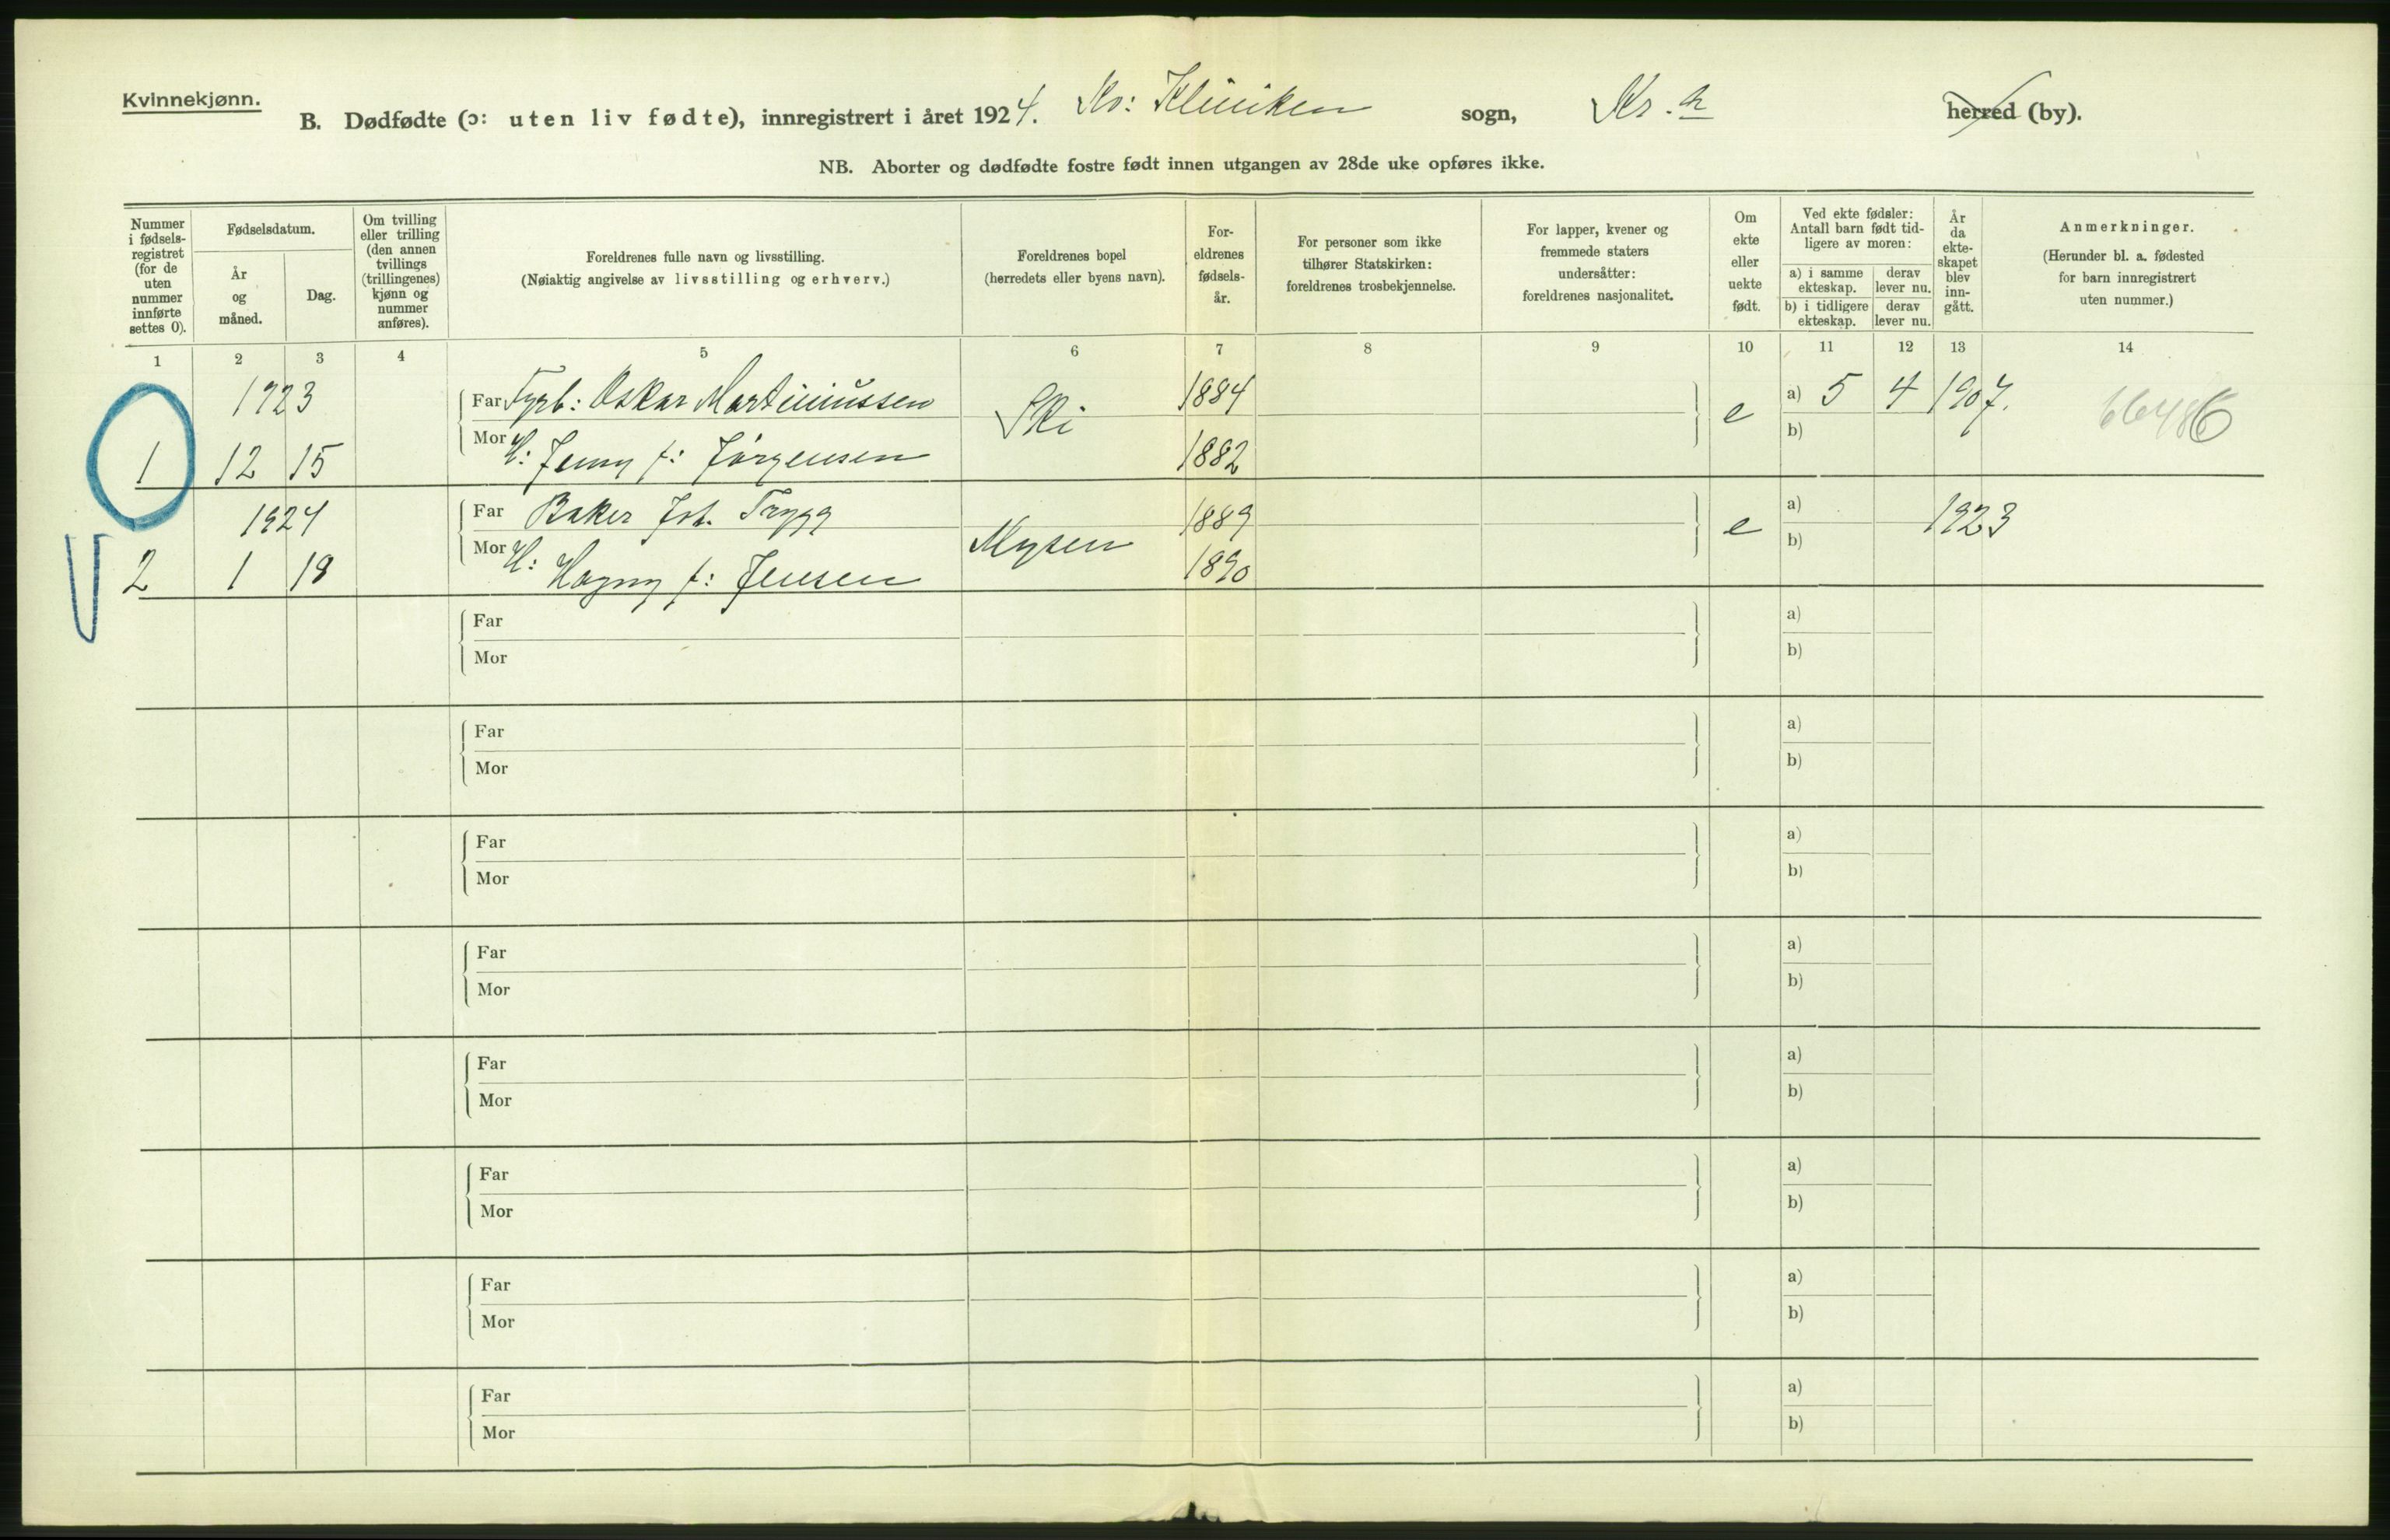 Kvinnekjønn.
B. Dødfødte (ɔ: uten liv fødte), innregistrert i året 1924. Kv: Kliniken sogn, Kr.a herred (by).
NB. Aborter og dødfødte fostre født innen utgangen av 28de uke opføres ikke.
Nummer i fødsels-registret (for de uten nummer innførte settes 0).
Fødselsdatum.
År og måned.
Dag.
Om tvilling eller trilling (den annen tvillings (trillingenes) kjønn og nummer anføres).
Foreldrenes fulle navn og livsstilling.
(Nøiaktig angivelse av livsstilling og erhverv.)
Foreldrenes bopel
(herredets eller byens navn).
For-eldrenes fødsels-år.
For personer som ikke tilhører Statskirken: foreldrenes trosbekjennelse.
For lapper, kvener og fremmede staters undersåtter: foreldrenes nasjonalitet.
Om ekte eller uekte født.
Ved ekte fødsler: Antall barn født tid-ligere av moren:
a) i samme ekteskap.
derav lever nu.
b) i tidligere ekteskap.
derav lever nu.
År da ekte-skapet blev inn-gått.
Anmerkninger.
(Herunder bl. a. fødested for barn innregistrert uten nummer.)
1 2 3 4 5 6 7 8 9 10 11 12 13 14
1923 Far Fyrb: Oskar Martiniussen Ski 1884 e a) 5 4 1907. 66486
1 12 15 Mor H: Jenny f: Jørgensen 1882 b)
1924 Far Baker Joh. Trygg Mysen 1889 e a) 1923
2 1 18 Mor H: Hagny f: Jensen 1890 b)
Far a)
Mor b)
Far a)
Mor b)
Far a)
Mor b)
Far a)
Mor b)
Far a)
Mor b)
Far a)
Mor b)
Far a)
Mor b)
Far a)
Mor b)